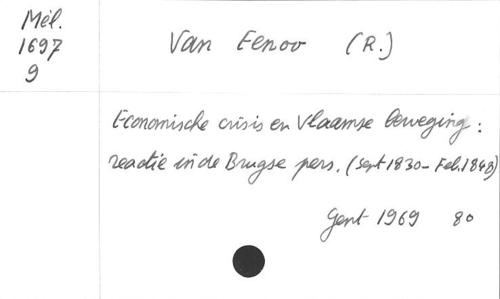 Mél.
1697
9
Van Eenoo (R.)
Economische crisis en Vlaamse beweging :
reactie in de Brugse pers. (Sept 1830 - Feb. 1848)
Gent 1969 80